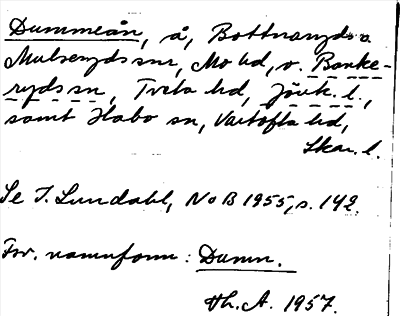 Dummeån, å, Bottnaryds o
Mulseryds snr, Mo hd, o. Banke-
ryds sn, Tveta hd, Jönk. l.,
samt Habo sn, Vartofta hd,
Skar. l.
Se I. Lundahl, NoB 1955, s. 142.
For. namnform: Dumn.
Vh. A. 1957.